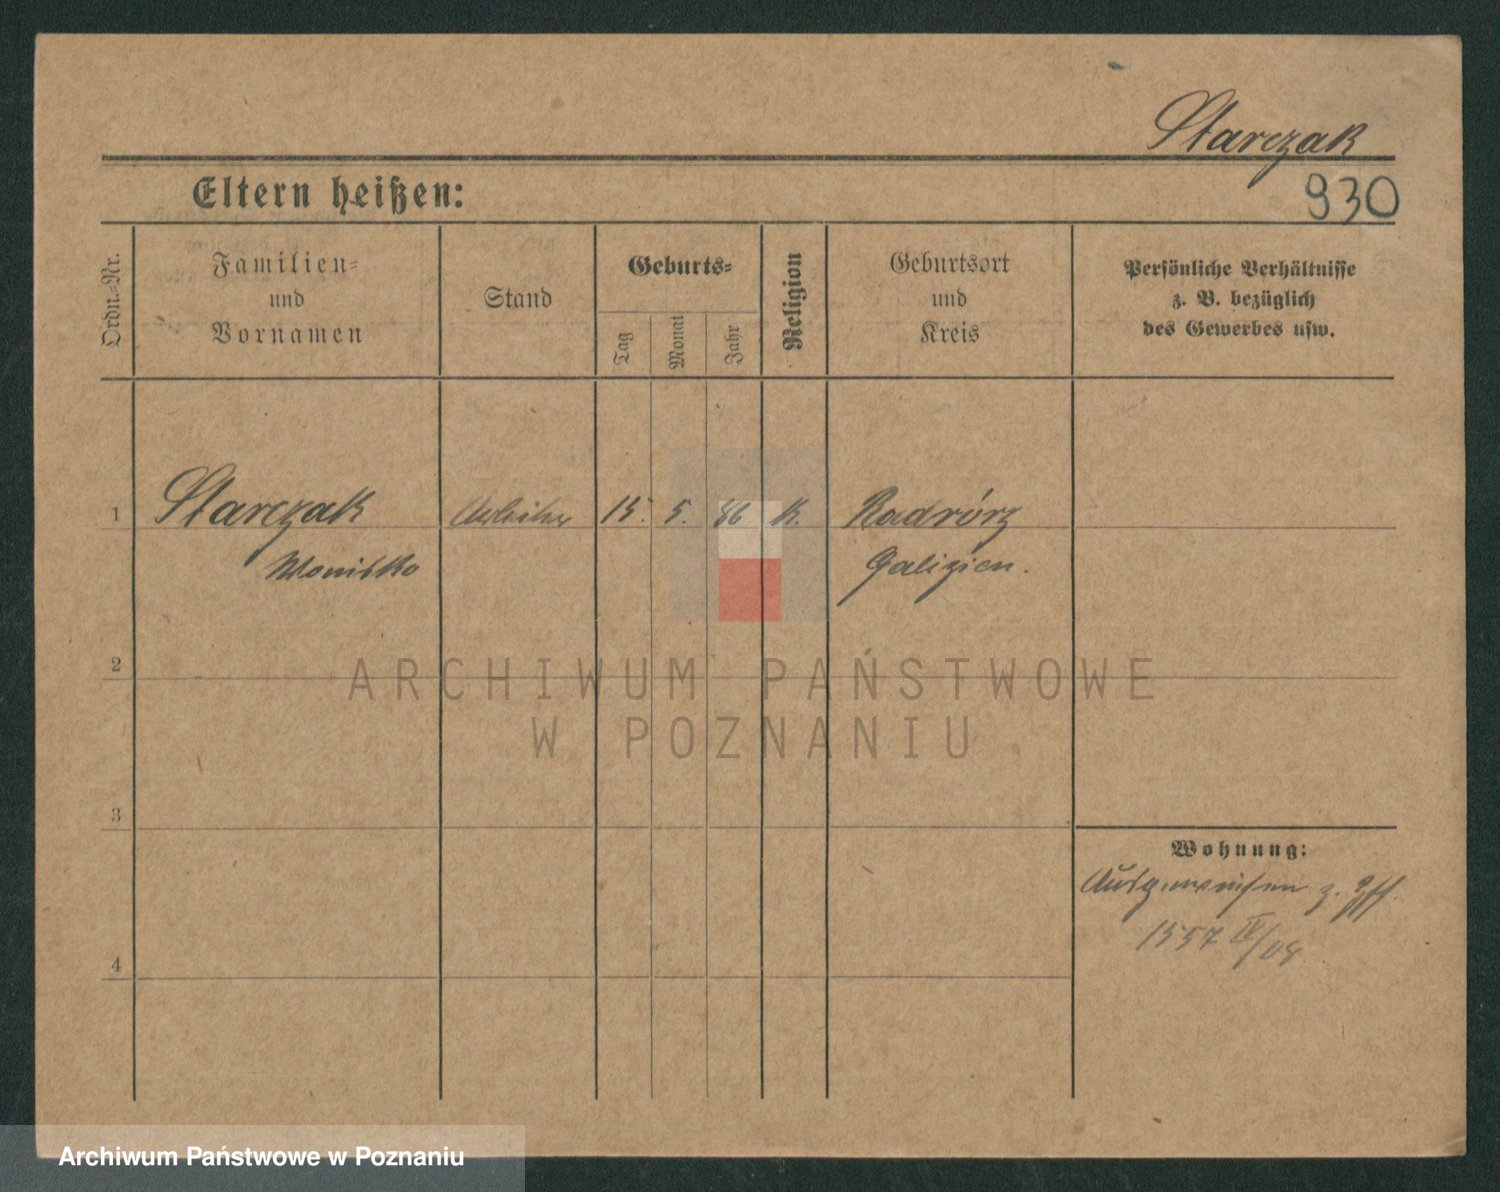 Starczak
Eltern heißen:
930
Ordn.-Nr.
Familien-
und
Vornamen
Stand
Geburts-
Tag
Monat
Jahr
Religion
Geburtsort
und
Kreis
Persönliche Verhältnisse
z. B. bezüglich
des Gewerbes usw.
1
Starczak
Arbeiter
15.
5.
86
K.
Radróż
Galizien.
2
ARCHIWUM PAŃSTWOWE
W POZNANIU
3
Wohnung:
Ausgewiesen z.
1557 IV/08
4
Archiwum Państwowe w Poznaniu